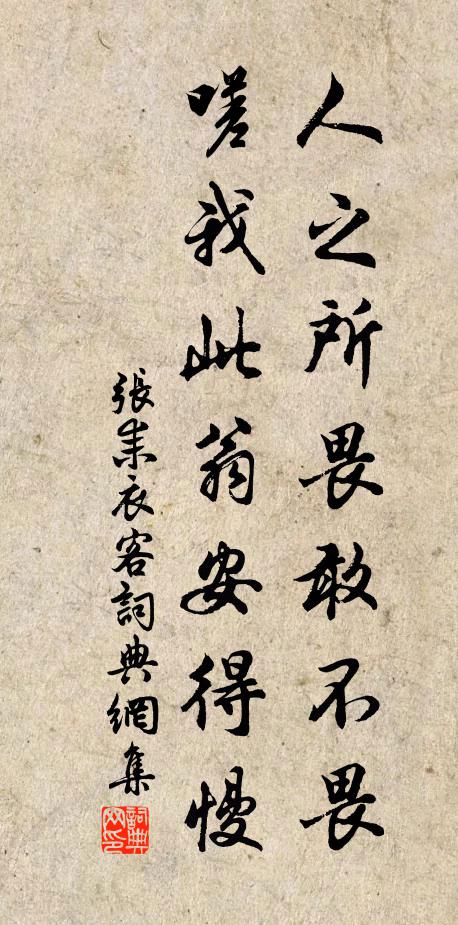 人之所畏敢不畏
嗟我此翁安得慢
張耒衣客詞典網集
詞典網印